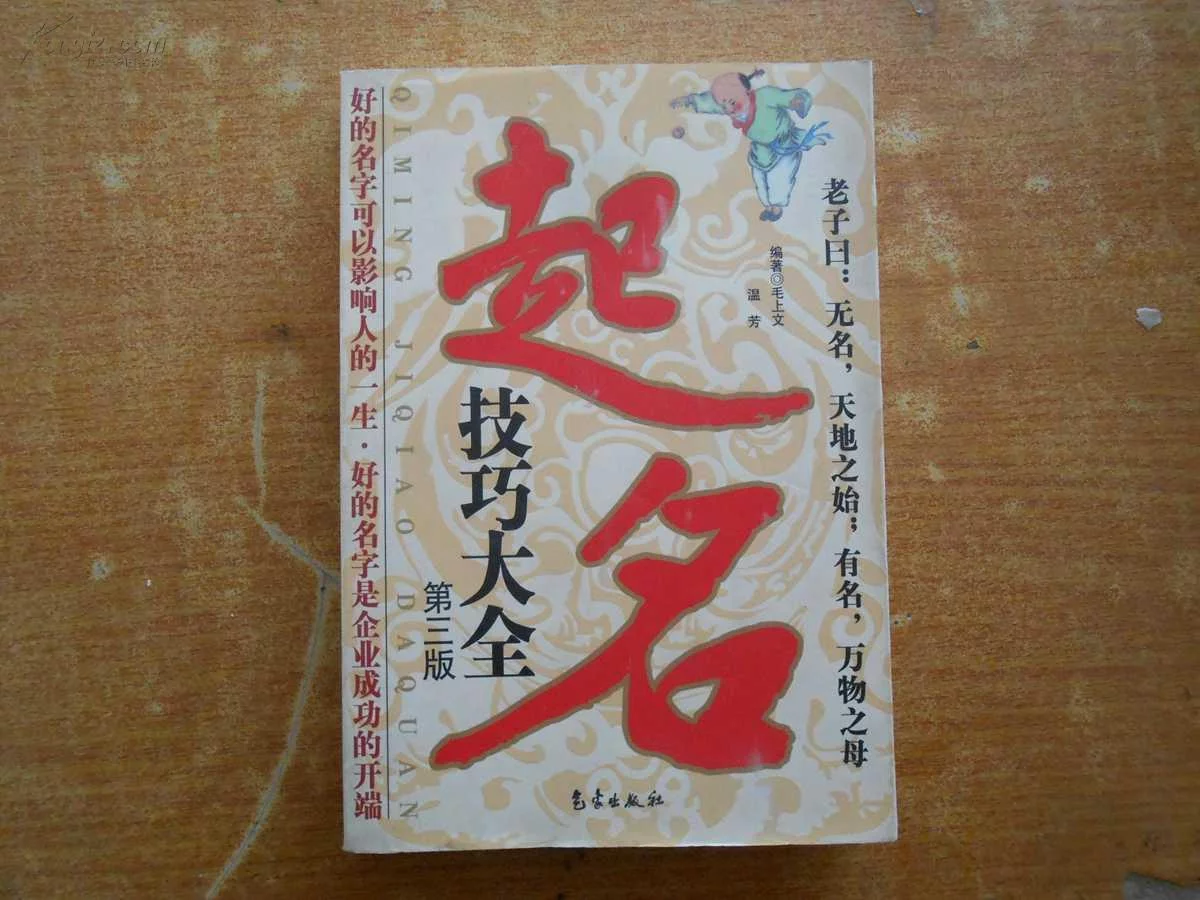 老子曰：无名，天地之始；有名，万物之母
编著◎毛上文
温芳
起名
技巧大全
第三版
QIMING JIQIAO DAQUAN
好的名字可以影响人的一生·好的名字是企业成功的开端
气象出版社